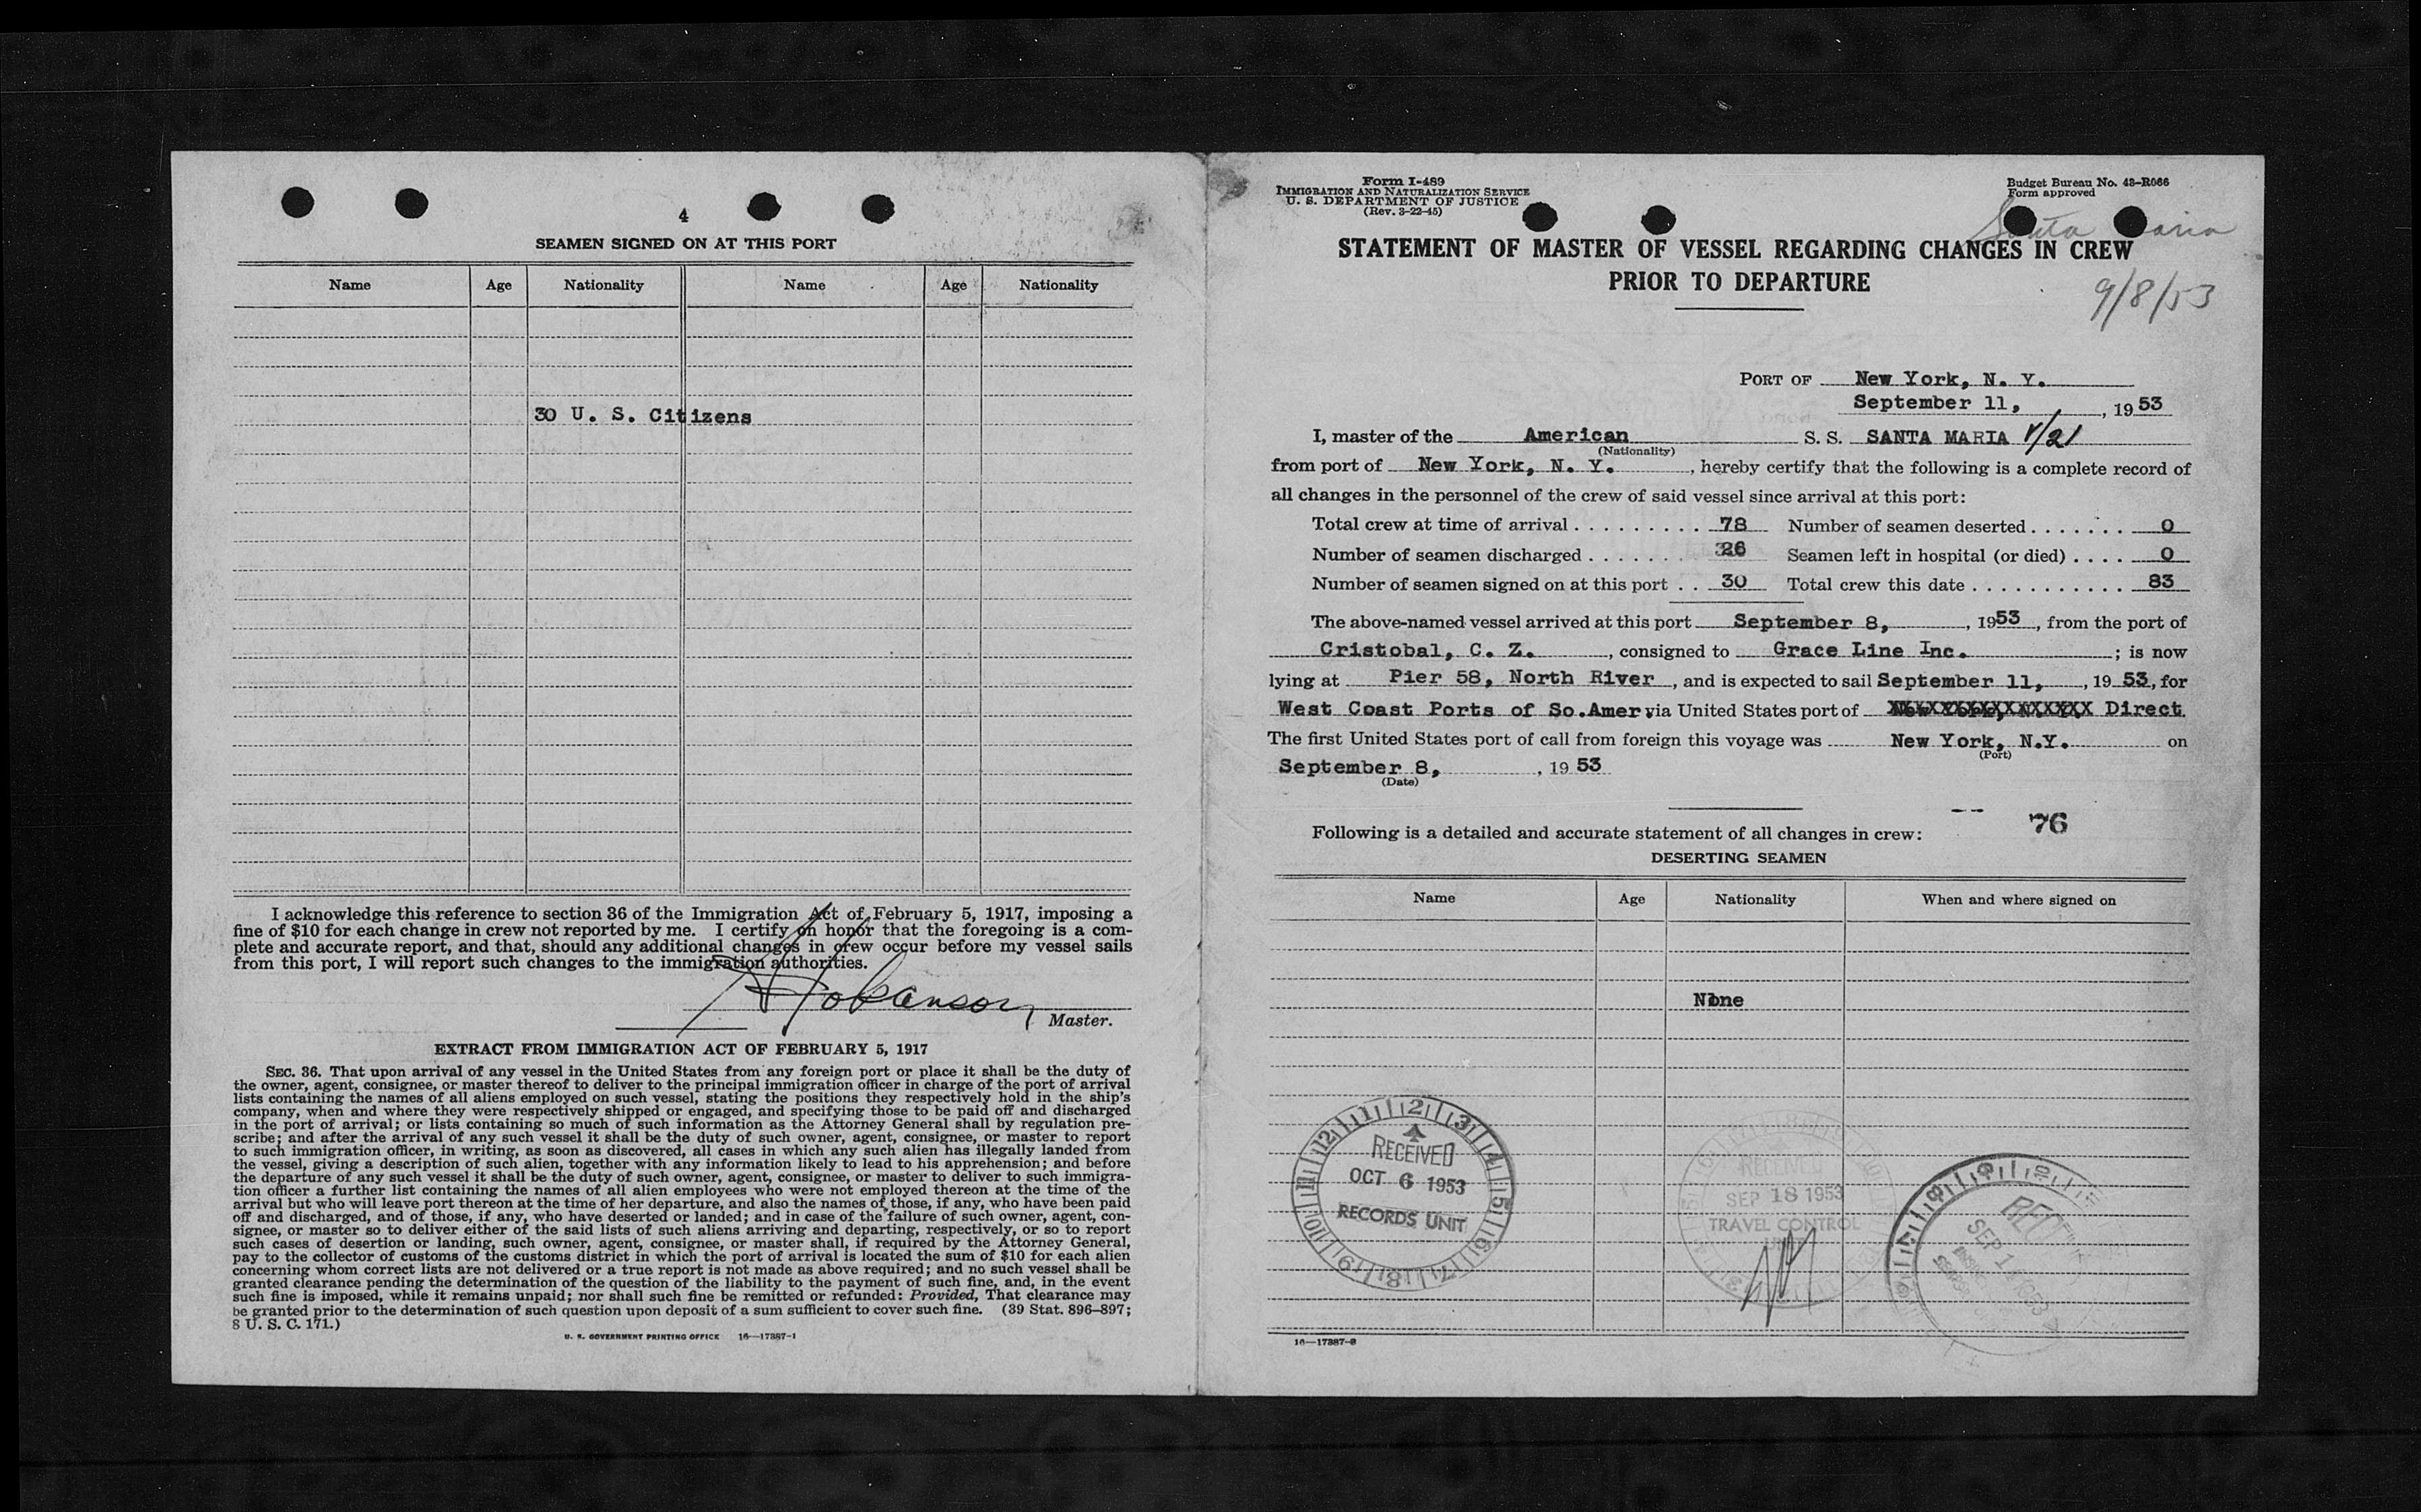 4
SEAMEN SIGNED ON AT THIS PORT
Name Age Nationality Name Age Nationality
30 U. S. Citizens
I acknowledge this reference to section 36 of the Immigration Act of February 5, 1917, imposing a
fine of $10 for each change in crew not reported by me. I certify on honor that the foregoing is a com-
plete and accurate report, and that, should any additional changes in crew occur before my vessel sails
from this port, I will report such changes to the immigration authorities.
Master.
EXTRACT FROM IMMIGRATION ACT OF FEBRUARY 5, 1917
SEC. 36. That upon arrival of any vessel in the United States from any foreign port or place it shall be the duty of
the owner, agent, consignee, or master thereof to deliver to the principal immigration officer in charge of the port of arrival
lists containing the names of all aliens employed on such vessel, stating the positions they respectively hold in the ship's
company, when and where they were respectively shipped or engaged, and specifying those to be paid off and discharged
in the port of arrival; or lists containing so much of such information as the Attorney General shall by regulation pre-
scribe; and after the arrival of any such vessel it shall be the duty of such owner, agent, consignee, or master to report
to such immigration officer, in writing, as soon as discovered, all cases in which any such alien has illegally landed from
the vessel, giving a description of such alien, together with any information likely to lead to his apprehension; and before
the departure of any such vessel it shall be the duty of such owner, agent, consignee, or master to deliver to such immigra-
tion officer a further list containing the names of all alien employees who were not employed thereon at the time of the
arrival but who will leave port thereon at the time of her departure, and also the names of those, if any, who have been paid
off and discharged, and of those, if any, who have deserted or landed; and in case of the failure of such owner, agent, con-
signee, or master so to deliver either of the said lists of such aliens arriving and departing, respectively, or so to report
such cases of desertion or landing, such owner, agent, consignee, or master shall, if required by the Attorney General,
pay to the collector of customs of the customs district in which the port of arrival is located the sum of $10 for each alien
concerning whom correct lists are not delivered or a true report is not made as above required; and no such vessel shall be
granted clearance pending the determination of the question of the liability to the payment of such fine, and, in the event
such fine is imposed, while it remains unpaid; nor shall such fine be remitted or refunded: Provided, That clearance may
be granted prior to the determination of such question upon deposit of a sum sufficient to cover such fine. (39 Stat. 896–897;
8 U. S. C. 171.)
U. S. GOVERNMENT PRINTING OFFICE 16—17387-1
Form I-489
IMMIGRATION AND NATURALIZATION SERVICE
U. S. DEPARTMENT OF JUSTICE
(Rev. 3-22-45)
Budget Bureau No. 43-R066
Form approved
Santa Maria
STATEMENT OF MASTER OF VESSEL REGARDING CHANGES IN CREW
PRIOR TO DEPARTURE
9/8/53
PORT OF New York, N. Y.
September 11, , 19 53
I, master of the American S. S. SANTA MARIA V/21
(Nationality)
from port of New York, N. Y. , hereby certify that the following is a complete record of
all changes in the personnel of the crew of said vessel since arrival at this port:
Total crew at time of arrival 78 Number of seamen deserted 0
Number of seamen discharged 26 Seamen left in hospital (or died) 0
Number of seamen signed on at this port 30 Total crew this date 83
The above-named vessel arrived at this port September 8, , 1953 , from the port of
Cristobal, C. Z. , consigned to Grace Line Inc. ; is now
lying at Pier 58, North River , and is expected to sail September 11, , 19 53, for
West Coast Ports of So.Amer. via United States port of Direct.
The first United States port of call from foreign this voyage was New York, N.Y. on
(Port)
September 8, , 19 53
(Date)
76
Following is a detailed and accurate statement of all changes in crew:
DESERTING SEAMEN
Name Age Nationality When and where signed on
None
RECEIVED
OCT 6 1953
RECORDS UNIT
RECEIVED
SEP 18 1953
TRAVEL CONTROL
UNIT
16—17387-2